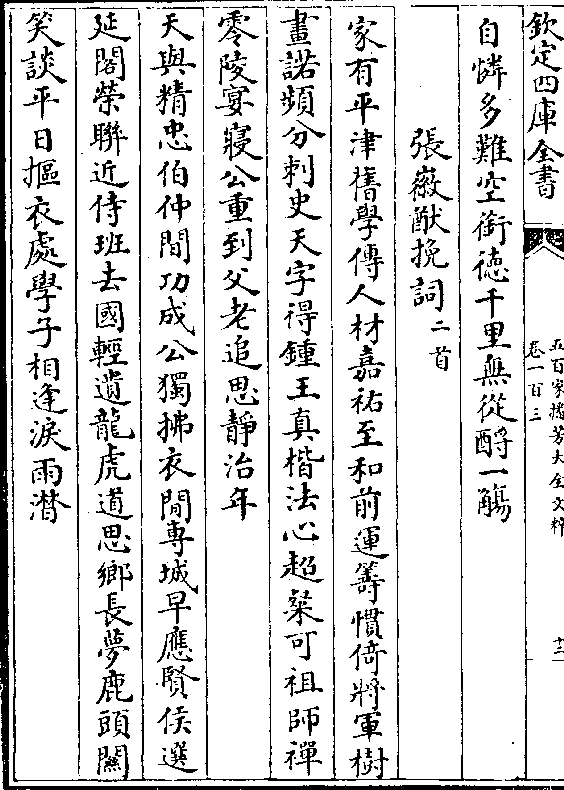 欽定四庫全書
五百家播芳大全文粹
卷一百三
十三
自憐多難空銜德千里無從酹一觴
張徽猷挽詞二首
家有平津舊學傳人材嘉祐至和前運籌慣倚將軍樹
畫諾頻分刺史天字得鍾王真楷法心超粲可祖師禪
零陵宴寢公重到父老追思靜治年
天與精忠伯仲間功成公獨拂衣閒專城早應賢侯選
延閣榮聯近侍班去國輕遺龍虎道思鄉長夢鹿頭關
笑談平日摳衣處學子相逢淚雨潸